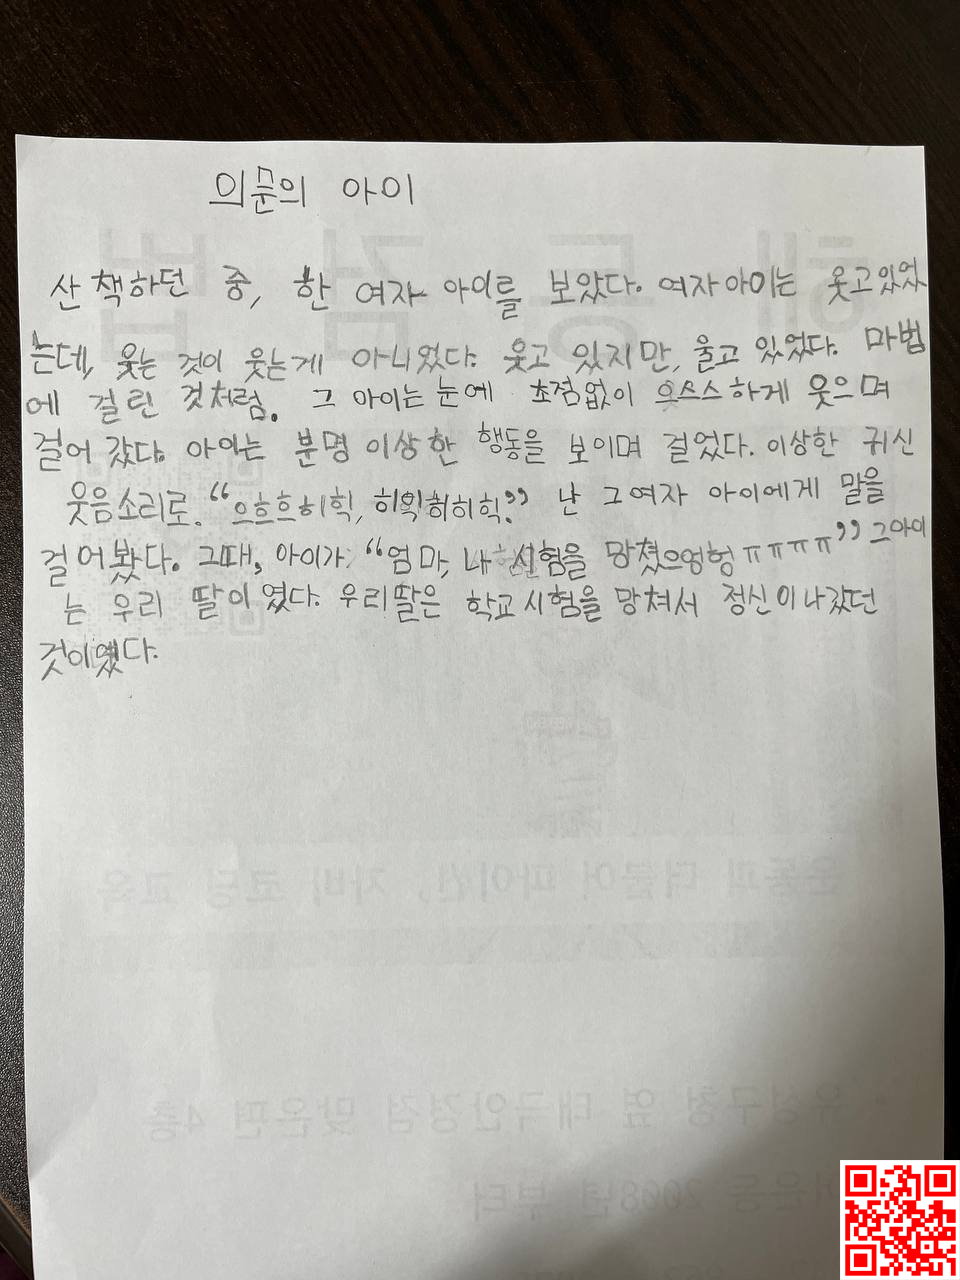 의문의 아이
산책하던 중, 한 여자 아이를 보았다. 여자아이는 웃고있었
는데, 웃는 것이 웃는게 아니였다. 웃고 있지만, 울고 있었다. 마법
에 걸린 것처럼. 그 아이는 눈에 초점없이 으스스하게 웃으며
걸어 갔다. 아이는 분명 이상한 행동을 보이며 걸었다. 이상한 귀신
웃음소리로. “으흐흐히힉, 히힉히히힉.” 난 그여자 아이에게 말을
걸어봤다. 그때, 아이가 “엄마, 나 시험을 망쳤으엉헝ㅠㅠㅠㅠ” 그아이
는 우리 딸이였다. 우리딸은 학교시험을 망쳐서 정신이나갔던
것이였다.
운동과 더불어 파이썬, 자바 코딩 교육
유성구청 옆 태극안경점 맞은편 4층
2008년 부터